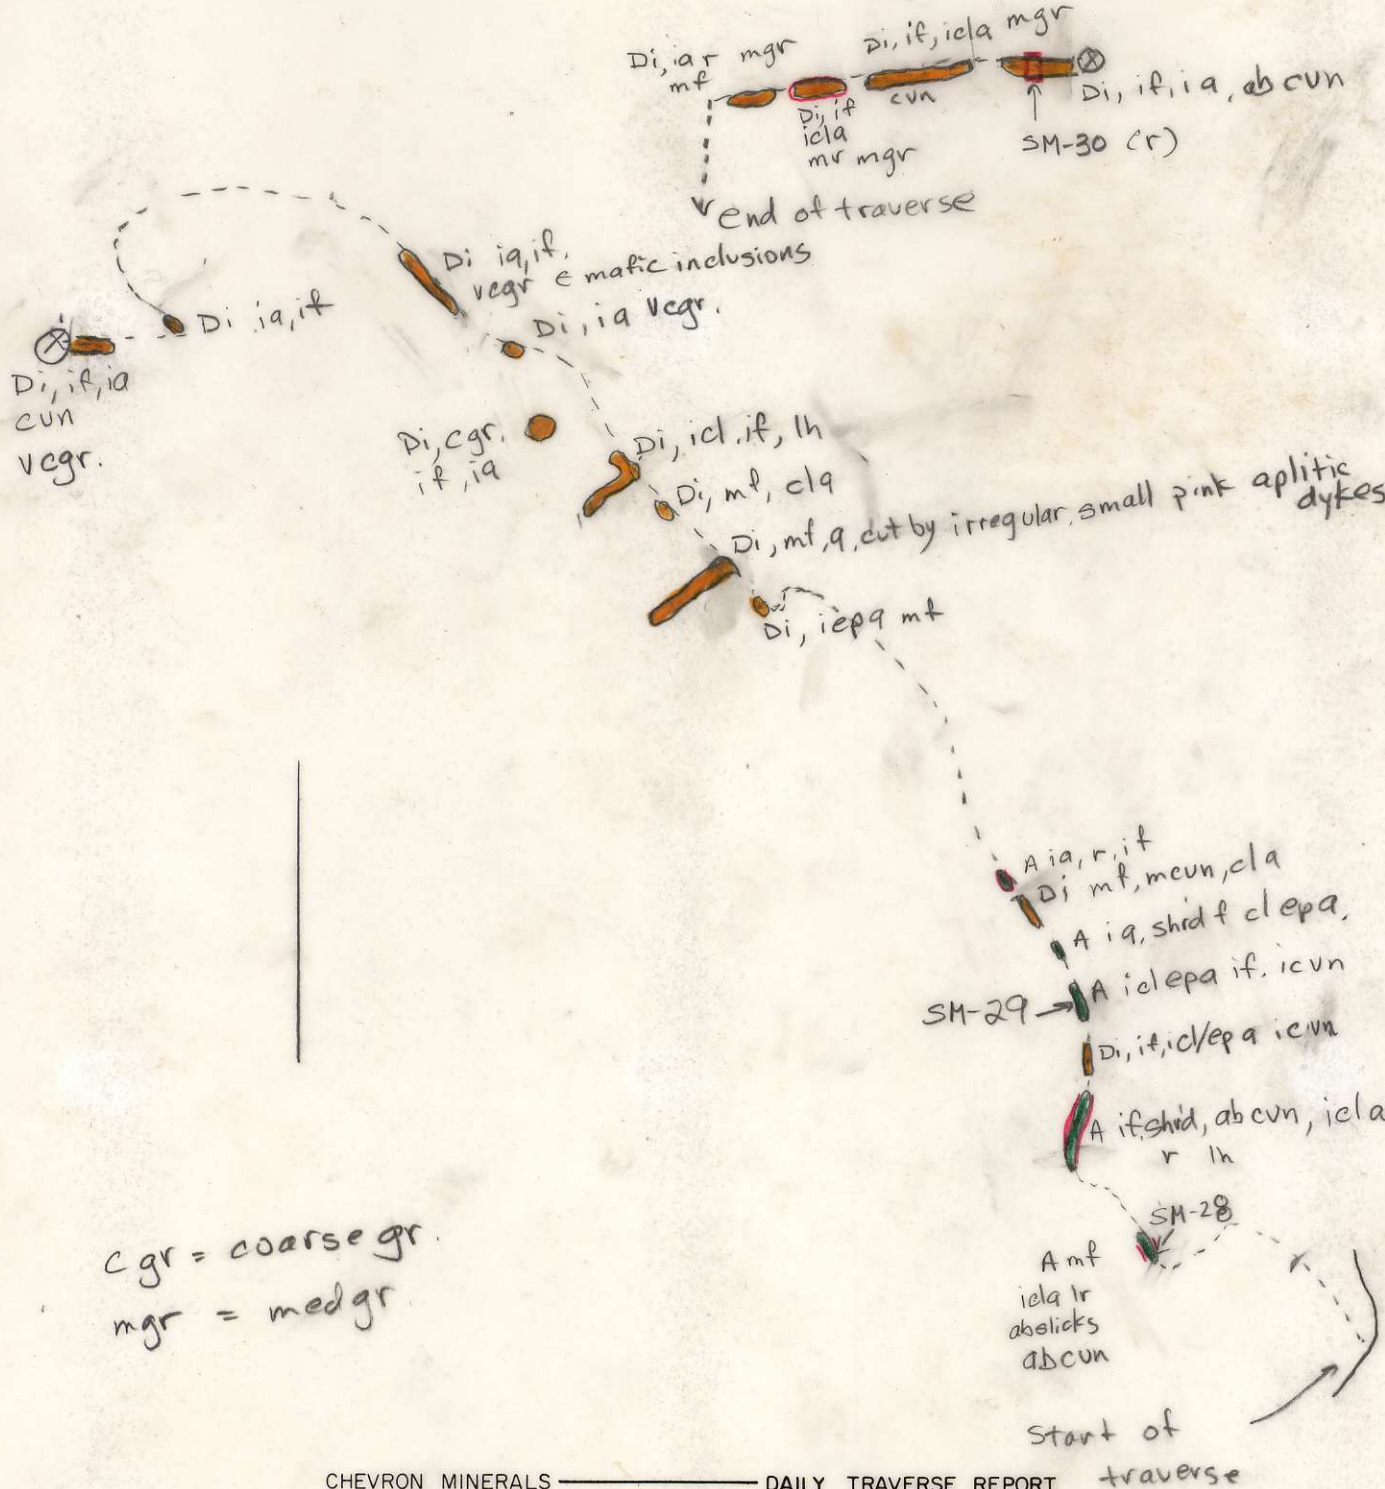 Di, iar mgr
mf
Di, if, icla mgr
cvn
Di, if
icla
mr mgr
Di, if, ia, ab cvn
SM-30 (r)
end of traverse
Di ia, if,
vcgr mafic inclusions
Di, ia vcgr.
Di ia, if
Di, if, ia
cvn
vcgr.
Di, cgr.
if, ia
Di, icl, if, lh
Di, mf, cla
Di, mf, a, cut by irregular, small pink aplitic
dykes
Di, iepa mf
A ia, r, if
Di mf, mcvn, cla
A ia, shrd f cl epa,
A iclepa if, icvn
SM-29
Di, if, icl/ep a icvn
A if, shrd, ab cvn, icla
r lh
SM-28
A mf
icla lr
abslicks
abcvn
cgr = coarse gr.
mgr = med gr.
Start of
traverse
CHEVRON MINERALS DAILY TRAVERSE REPORT